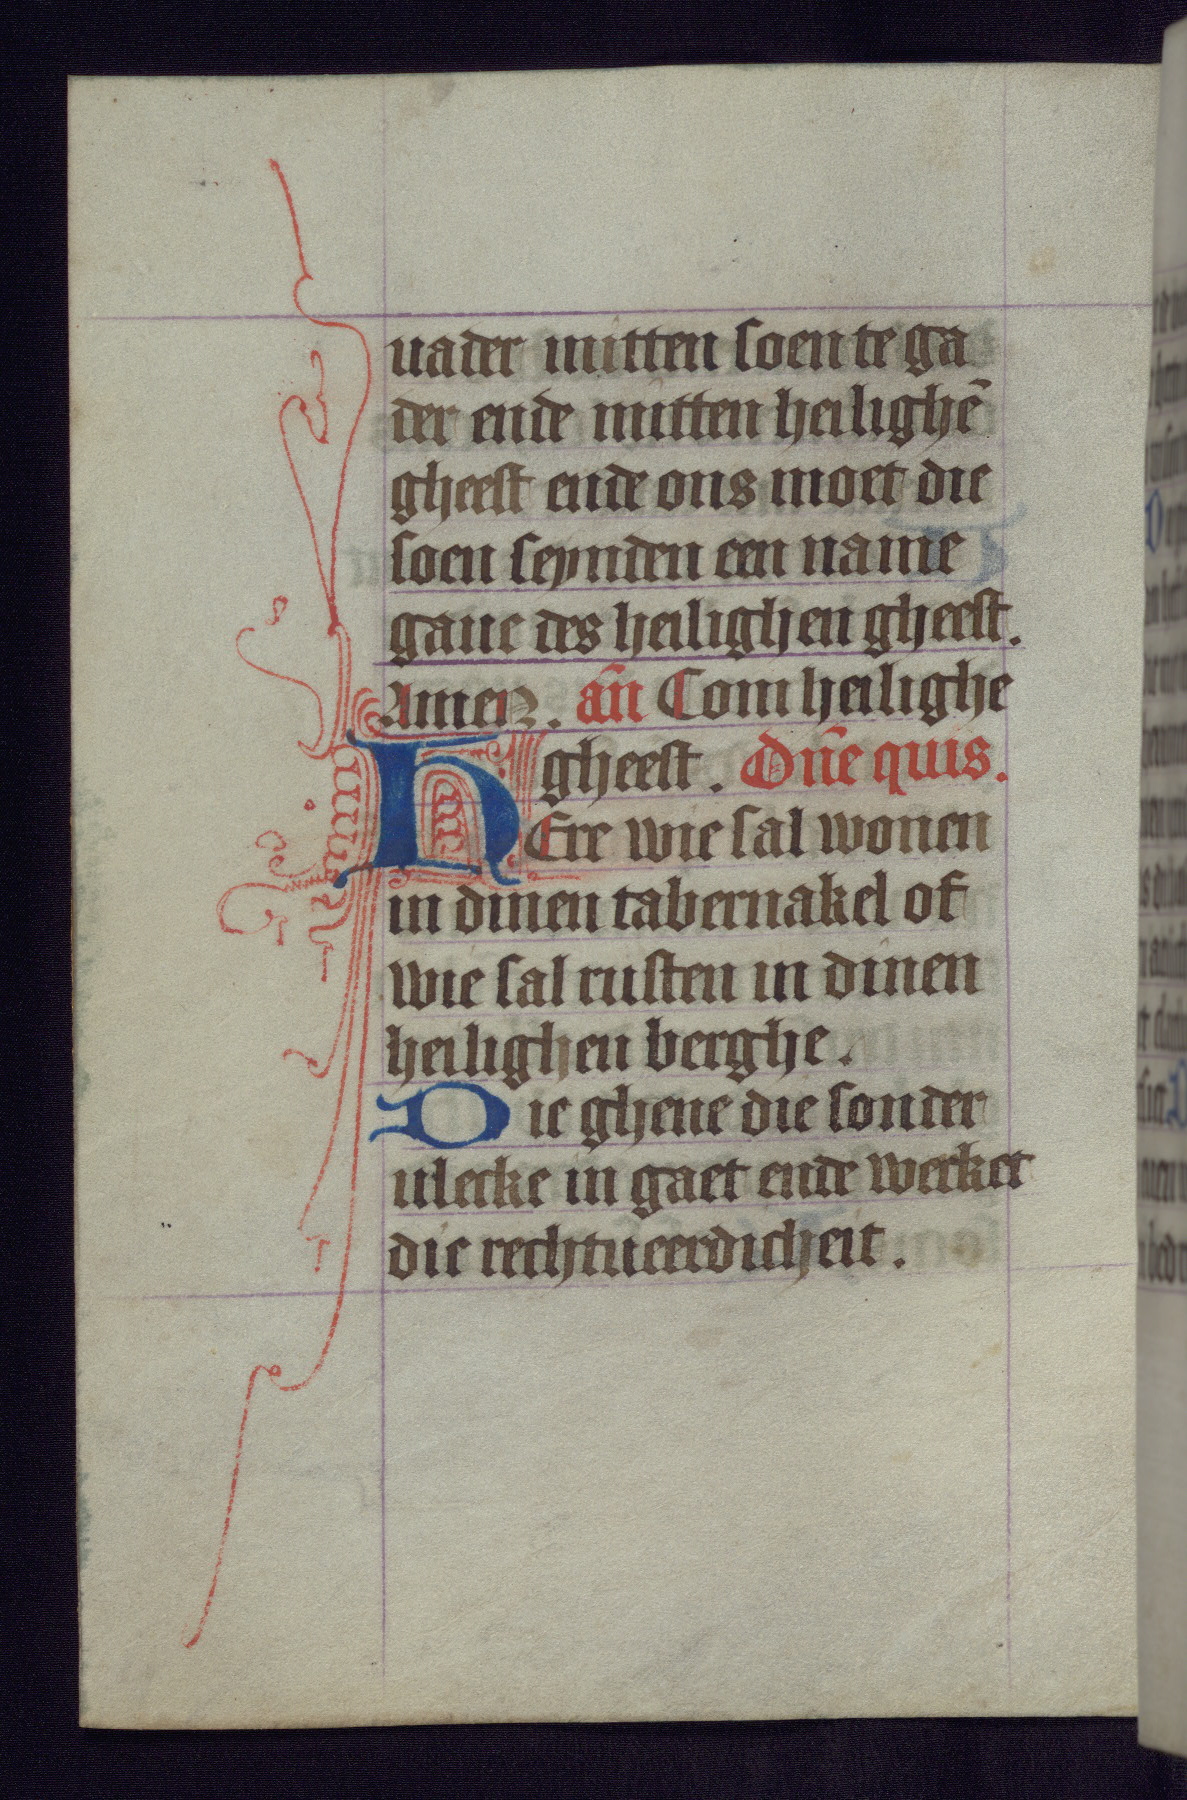 uader mitten soen te ga
der ende mitten heilighē
gheest ende ons moet die
soen seynden een name
gaue des heilighen gheest.
Amen. an̄ Com heilighe
gheest. Dn̄e quis.
HEre wie sal wonen
in dinen tabernakel of
wie sal rusten in dinen
heilighen berghe.
Die ghene die sonder
vlecke in gaet ende werket
die rechtueerdicheit.